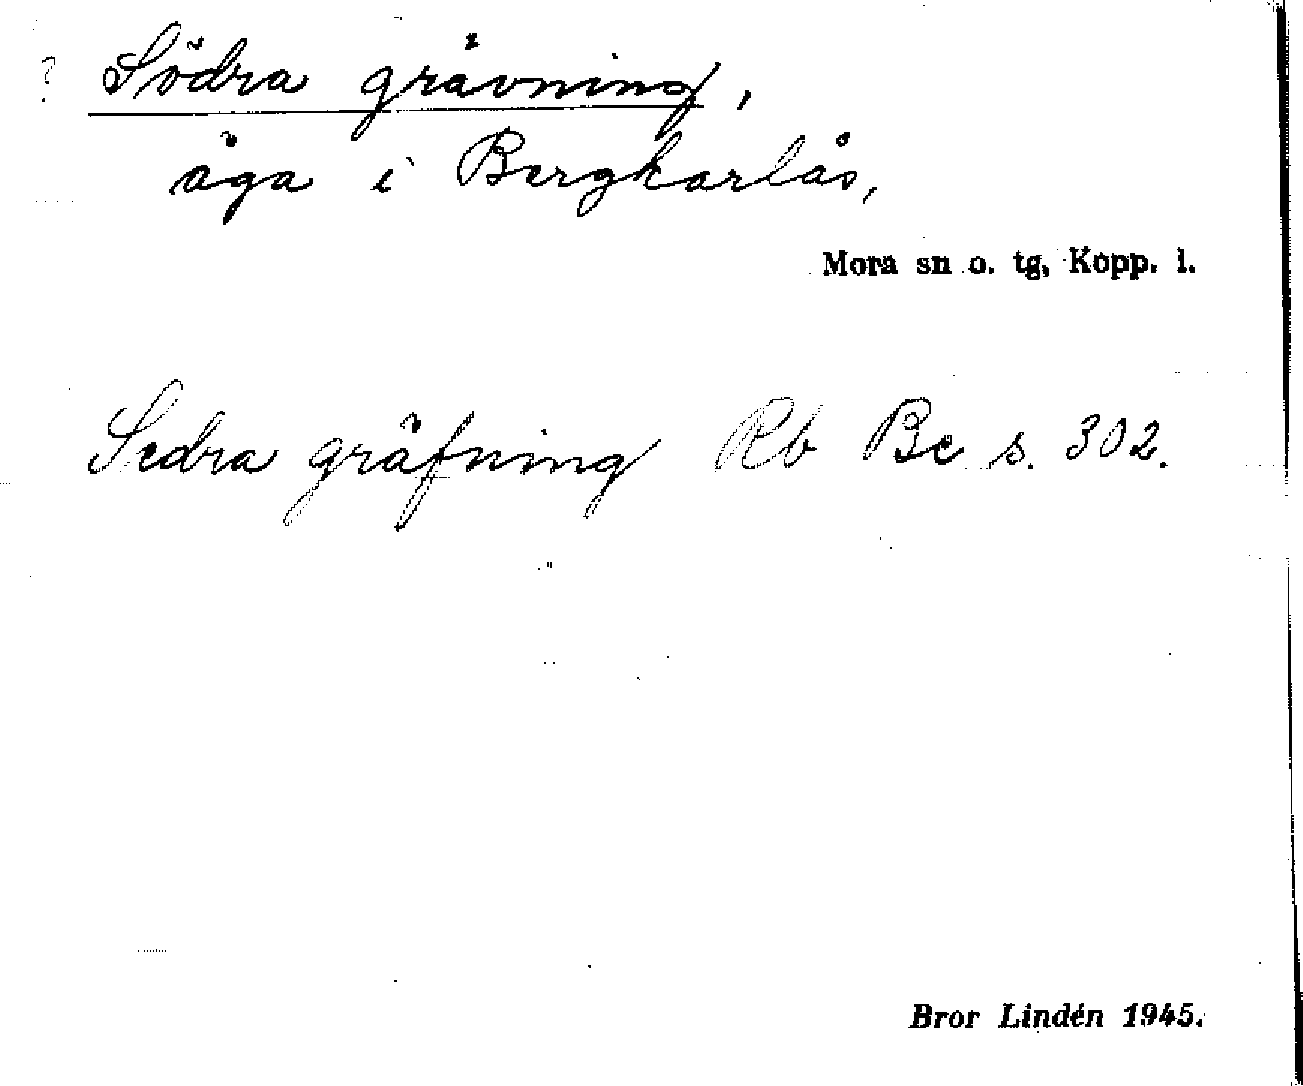 ? Södra grävning,
äga i Bergkarlås,
Mora sn o. tg, Kopp. l.
Sedra gräfning Rb Be s. 302.
Bror Lindén 1945.